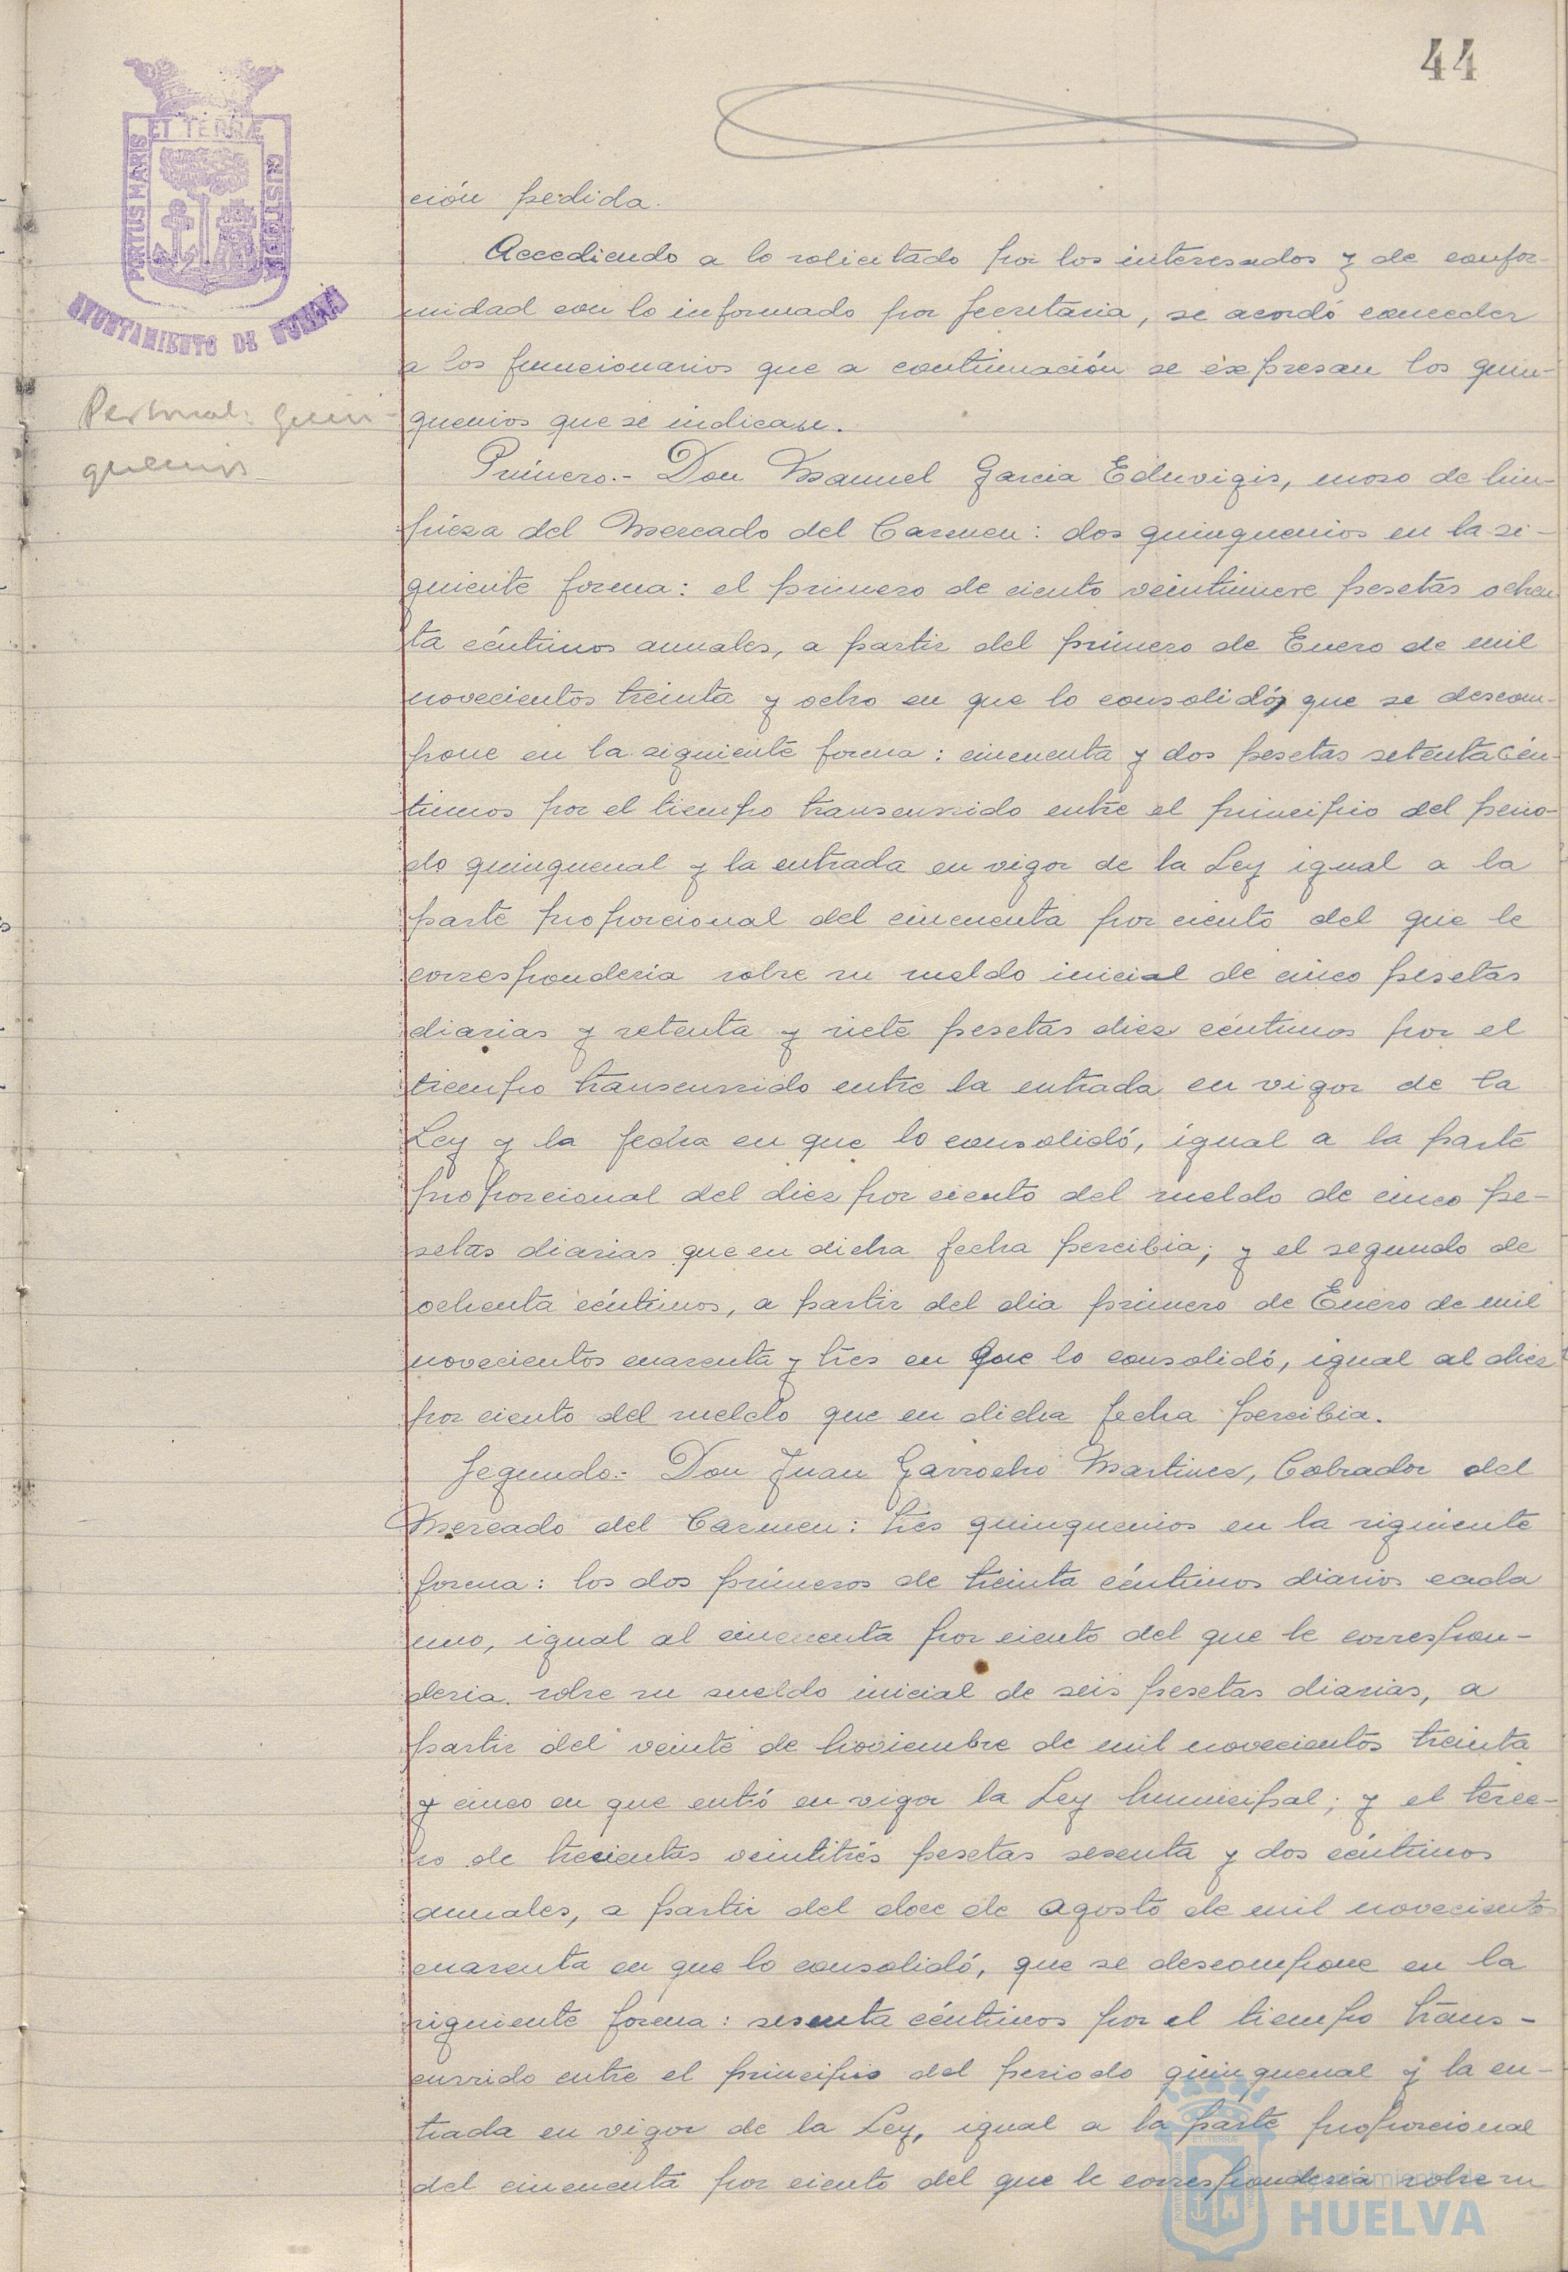 44
ET TERRÆ
PORTUS MARIS
CUSTODIA
AYUNTAMIENTO DE HUELVA
Personal: quin-
quenios
ción pedida.
Accediendo a lo solicitado por los interesados y de confor-
midad con lo informado por Secretaria, se acordó conceder
a los funcionarios que a continuación se expresan los quin-
quenios que se indican.
Primero.- Don Manuel Garcia Eduvigis, moso de lim-
piesa del Mercado del Carmen: dos quinquenios en la si-
guiente forma: el primero de ciento veintinueve pesetas ochen
ta céntimos anuales, a partir del primero de Enero de mil
novecientos treinta y ocho en que lo consolidó, que se descom-
pone en la siguiente forma: cincuenta y dos pesetas setenta cén-
timos por el tiempo transcurrido entre el principio del perio-
do quinquenal y la entrada en vigor de la Ley igual a la
parte proporcional del cincuenta por ciento del que le
corresponderia sobre su sueldo inicial de cinco pesetas
diarias y setenta y siete pesetas diez céntimos por el
tiempo transcurrido entre la entrada en vigor de la
Ley y la fecha en que lo consolidó, igual a la parte
proporcional del diez por ciento del sueldo de cinco pe-
setas diarias que en dicha fecha percibia; y el segundo de
ochenta céntimos, a partir del dia primero de Enero de mil
novecientos cuarenta y tres en que lo consolidó, igual al diez
por ciento del sueldo que en dicha fecha percibia.
Segundo.- Don Juan Garrocho Martinez, Cobrador del
Mercado del Carmen: tres quinquenios en la siguiente
forma: los dos primeros de treinta céntimos diarios cada
uno, igual al cincuenta por ciento del que le correspon-
deria sobre su sueldo inicial de seis pesetas diarias, a
partir del veinte de Noviembre de mil novecientos treinta
y cinco en que entró en vigor la Ley Municipal; y el terce-
ro de trecientas veintitrés pesetas sesenta y dos céntimos
anuales, a partir del doce de Agosto de mil novecientos
cuarenta en que lo consolidó, que se descompone en la
siguiente forma: sesenta céntimos por el tiempo trans-
currido entre el principio del periodo quinquenal y la en-
trada en vigor de la Ley, igual a la parte proporcional
del cincuenta por ciento del que le corresponderia sobre su
Ayuntamiento de
HUELVA